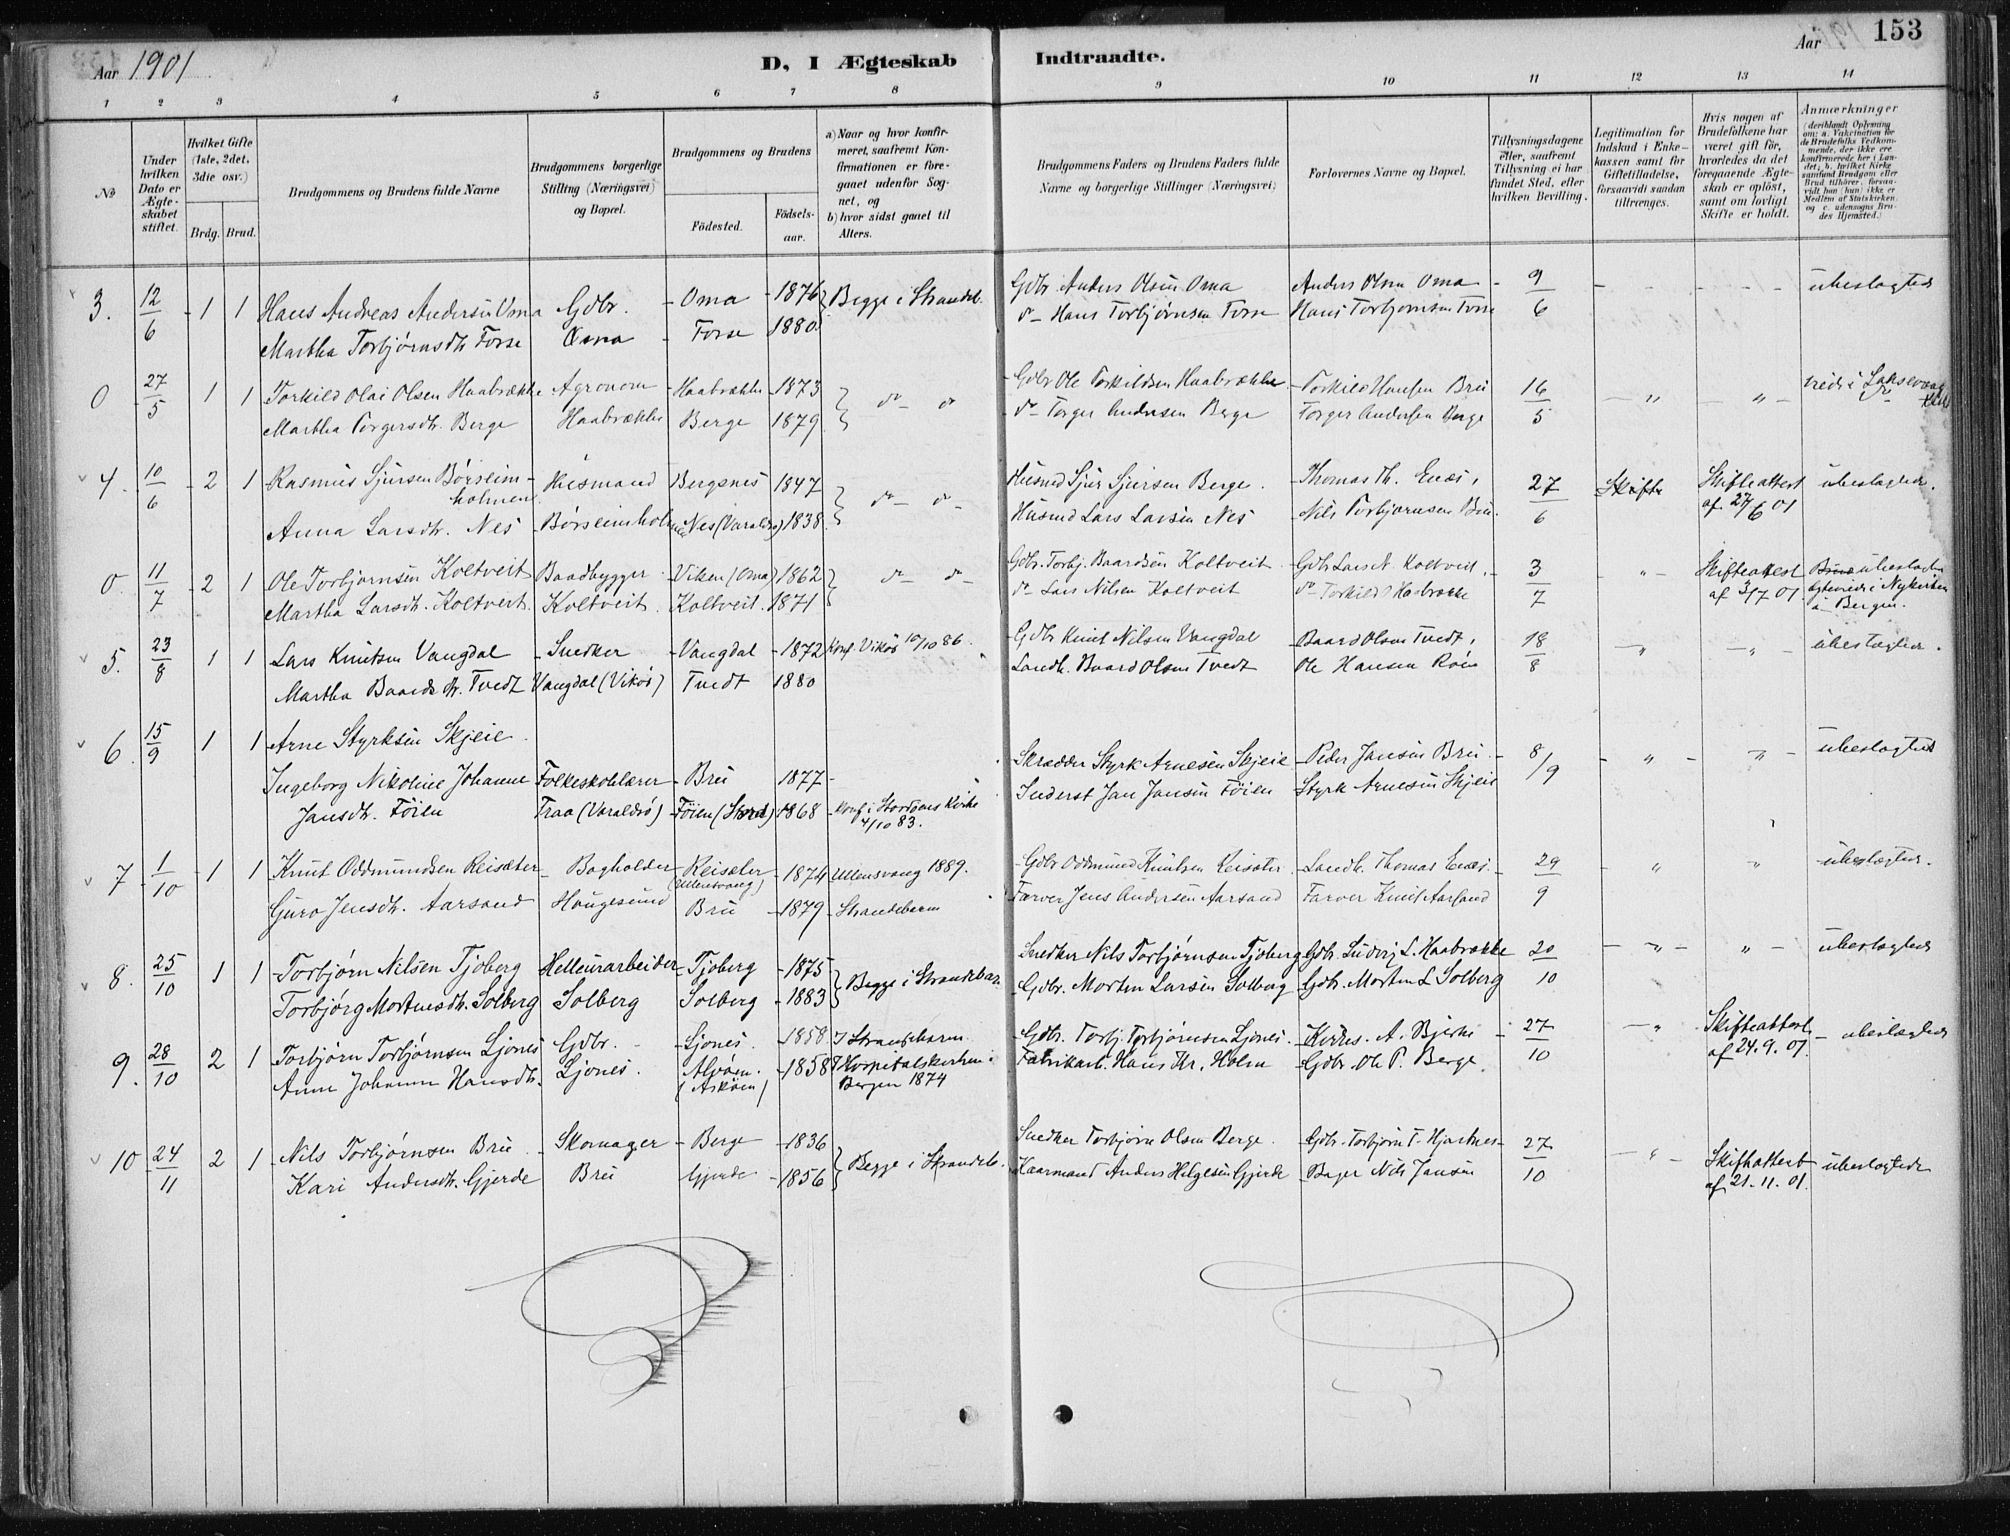 153
Aar 1901
D, I Ægteskab
Indtraadte.
Aar
1 2 3 4 5 6 7 8 9 10 11 12 13 14
No
Under hvilken Dato er Ægteskabet stiftet.
Hvilket Gifte (1ste, 2det, 3die osv.)
Brdg. Brud.
Brudgommens og Brudens fulde Navne
Brudgommens borgerlige Stilling (Næringsvei) og Bopæl.
Brudgommens og Brudens
Födested.
Födselsaar.
a) Naar og hvor konfirmeret, saafremt Konfirmationen er foregaaet udenfor Sognet, og
b) hvor sidst gaaet til Alters.
Brudgommens Faders og Brudens Faders fulde Navne og borgerlige Stillinger (Næringsvei)
Forlovernes Navne og Bopæl.
Tillysningsdagene eller, saafremt Tillysning ei har fundet Sted, efter hvilken Bevilling.
Legitimation for Indskud i Enkekassen samt for Giftetilladelse, forsaavidt saadan tiltrænges.
Hvis nogen af Brudefolkene har været gift før, hvorledes da det foregaaende Ægteskab er oplöst, samt om lovligt Skifte er holdt.
Anmærkninger (deriblandt Oplysning om: a. Vakcination for de Brudefolks Vedkommende, der ikke ere konfirmerede her i Landet; b. hvilket Kirkesamfund Brudgom eller Brud tilhører, forsaavidt han (hun) ikke er Medlem af Statskirken, og c. udensogns Brudes Hjemsted.)
3. 12/6 - 1 1 Hans Andreas Andersen Oma Gdbr. - Oma - 1876 } Begge i Strandeb. Gdbr Anders Olsen Oma Anders Olsen Oma - 9/6 ubeslægtede
Martha Torbjørnsdtr. Forse Oma - Forse 1880 do - Hans Torbjørnsen Forse Hans Torbjørnsen Forse
0 27/5 1 1 Torkild Olai Olsen Haabrække Agronom - Haabrække - 1873 } do - do Gdbr Ole Torkildsen Haabrække - Torkild Hansen Bru 16/5 - " - - " - viede i Laksevaag
Martha Torgersdtr. Berge Haabrække Berge 1879 do - Torger Andersen Berge Torger Andersen Berge
4. 10/6 - 2 1 Rasmus Sjursen Børseimholmen Husmand Bergsnes 1847 } do - do - Husmd Sjur Sjursen Berge. - Thomas Th. Enæs, 27/6 Skifte Skifteattest af 27/6 01 ubeslægtede.
Anna Larsdtr. Nes - Børseimholmen Nes (Varaldsø) 1838 Husmd Lars Larsen Nes - Nils Torbjørnsen Bru
0. 11/7 - 2 1 Ole Torbjørnsen Koltveit Baadbygger - Viken (Oma) 1862 } do - do - Gdbr. Torbj. Baardsen Koltveit - Gdbr Lars N. Koltveit. - 3/7 - " - Skifteattest af 3/7 01 ubeslægtede
Martha Larsdtr. Koltveit. Koltveit. Koltveit. 1871 do Lars Nilsen Koltveit do Torkild Haabrække viede i Nykirken i Bergen.
5. 23/8 1 1 Lars Knutsen Vangdal - Snedker - Vangdal - 1872 Konf. Vikør 10/10 86. Gdbr Knut Nilsen Vangdal - Baard Olsen Tvedt, 18/8 - " - " - ubeslægtede.
Martha Baardsdtr. Tvedt Vangdal (Vikør) Tvedt 1880 Landh. Baard Olsen Tvedt Ole Hansen Røen
6. 15/9 1 1 Arne Styrksen Skjeie Skrædder Styrk Arnesen Skjeie - Peder Jansen Bru - 8/9 - " - " - ubeslægtede
Ingeborg Nikoline Johanne Folkeskolelærer - Bru 1877 - Inderst Jan Jansen Føien Styrk Arnesen Skjeie
Jansdtr. Føien Traa (Varaldsø) - Føien (Stord) 1868 - Konf. i Stordøens Kirke 4/10 83.
7 1/10 - 1 1 Knut Oddmundsen Reisæter - Bogholder - Reisæter (Ullensvang) - 1874 Ullensvang 1889. - Gdbr Oddmund Knutsen Reisæter. - Landh. Thomas Enæs. - 29/9 " " ubeslægtede.
Guro Jensdtr. Aarsand Haugesund Bru - 1879 - Strandebarm Farver Jens Andersen Aarsand Farver Knut Aarsand
8. 25/10 1 1 - Torbjørn Nilsen Tjoberg Hellearbeider - Tjoberg - 1875 } Begge i Strandebar. Snedker Nils Torbjørnsen Tjoberg - Gdbr. Ludvig L. Haabrække 20/10 - " - " - ubeslægtede
Torbjørg Mortensdtr. Solberg Solberg Solberg - 1883 - Gdbr. Morten Larsen Solberg Gdbr. Morten L Solberg
9. 28/10 2 1 Torbjørn Torbjørnsen Ljones Gdbr. - Ljones. - 1858 I Strandebarm. - Gdbr. Torbj. Torbjørnsen Ljones. - Kirkes. A. Bjerke - 27/10 - " Skifteattest af 24.9.01 - ubeslægtede
Anne Johanne Hansdtr. Ljones. Alvøen. (Askøen) - 1858 I Hospitalskirken i Bergen 1874 Fabrikarb. Hans Kr. Holm - Gdbr. Ole P. Berge.
10 24/11 2 1 - Nils Torbjørnsen Bru - Skomager - Berge - 1836 } Begge i Strandeb. Snedker Torbjørn Olsen Berge. - Gdbr. Torbjørn T. Hjartnes - 27/10 - " - Skifteattest af 21.11.01 ubeslægtede
Kari Andersdtr. Gjerde Bru Gjerde - 1856 Kaarmand Anders Helgesen Gjerde - Bager Nils Jansen